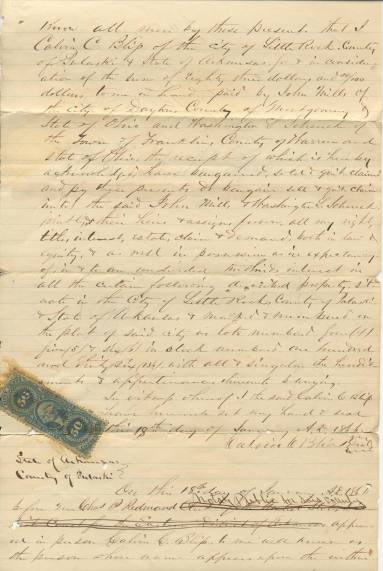 Know all men by these presents that I
Calvin C. Bliss of the city of Little Rock County
of Pulaski & State of Arkansas for & in consider-
ation of the sum of Eighty three dollars and /100
dollars to me in hand paid by John Mills of
the city of Dayton County of Montgomery &
State of Ohio and Washington Schenck of
the town of Franklin County of Warren and
State of Ohio the receipt of which is hereby
acknowledged have bargained, sold & quit claimed
and by these presents do bargain sell & quit claim
unto the said John Mills & Washington Schenck
their heirs & assigns forever all my right
title, interest, estate, claim & demand, both in law &
equity, & as well in possession as in expectancy
of in & to an undivided interest in
all the certain following described property situ
ate in the City of Little Rock, County of Pulaski
& State of Arkansas & numbered in
the plat of said city as lots numbered four (4)
five (5) & six (6) in block numbered one hundred
and thirty six (136) with all & singular the heredit
aments & appurtenances thereunto belonging
In witness whereof I the said Calvin C. Bliss
have hereunto set my hand & seal
this 18th day of January A.D. 1866
Calvin C. Bliss
State of Arkansas
County of Pulaski
50 50
On this 18th day
before me Chas P. Redmond
appear
ed in person Calvin C. Bliss to me well known as
the person whose name appears upon the within